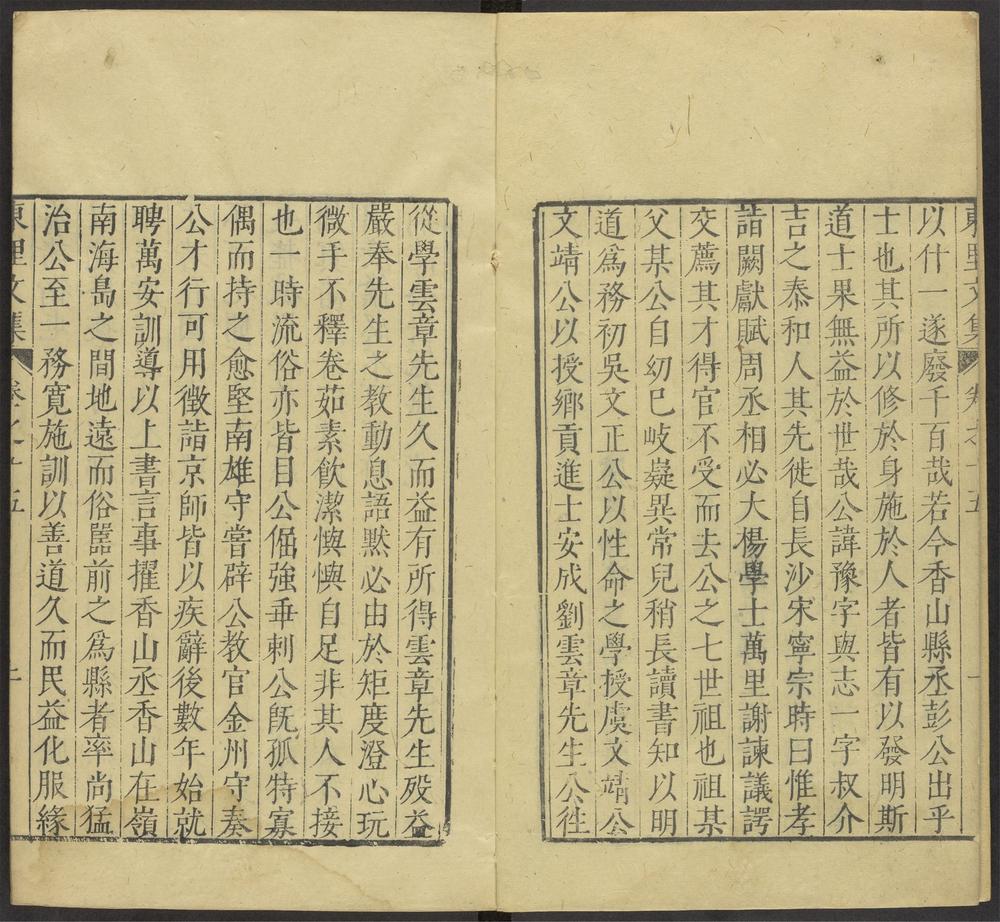 東里文集 卷之十五 一
以什一遂廢千百哉若今香山縣丞彭公出乎
士也其所以修於身施於人者皆有以發明斯
道士果無益於世哉公諱豫字與志一字叔介
吉之泰和人其先徙自長沙宋寧宗時曰惟孝
詣闕獻賦周丞相必大楊學士萬里謝諫議諤
交薦其才得官不受而去公之七世祖也祖某
父某公自幼已岐嶷異常兒稍長讀書知以明
道為務初吳文正公以性命之學授虞文靖公
文靖公以授鄉貢進士安成劉雲章先生公徃
從學雲章先生久而益有所得雲章先生殁益
嚴奉先生之教動息語默必由於矩度澄心玩
微手不釋卷茹素飲潔懊懊自足非其人不接
也一時流俗亦皆目公倔強乖剌公既孤特寡
偶而持之愈堅南雄守嘗辟公教官金州守奏
公才行可用徵詣京師皆以疾辭後數年始就
聘萬安訓導以上書言事擢香山丞香山在嶺
南海島之間地遠而俗嚚前之為縣者率尚猛
治公至一務寛施訓以善道久而民益化服緣
東里文集 卷之十五